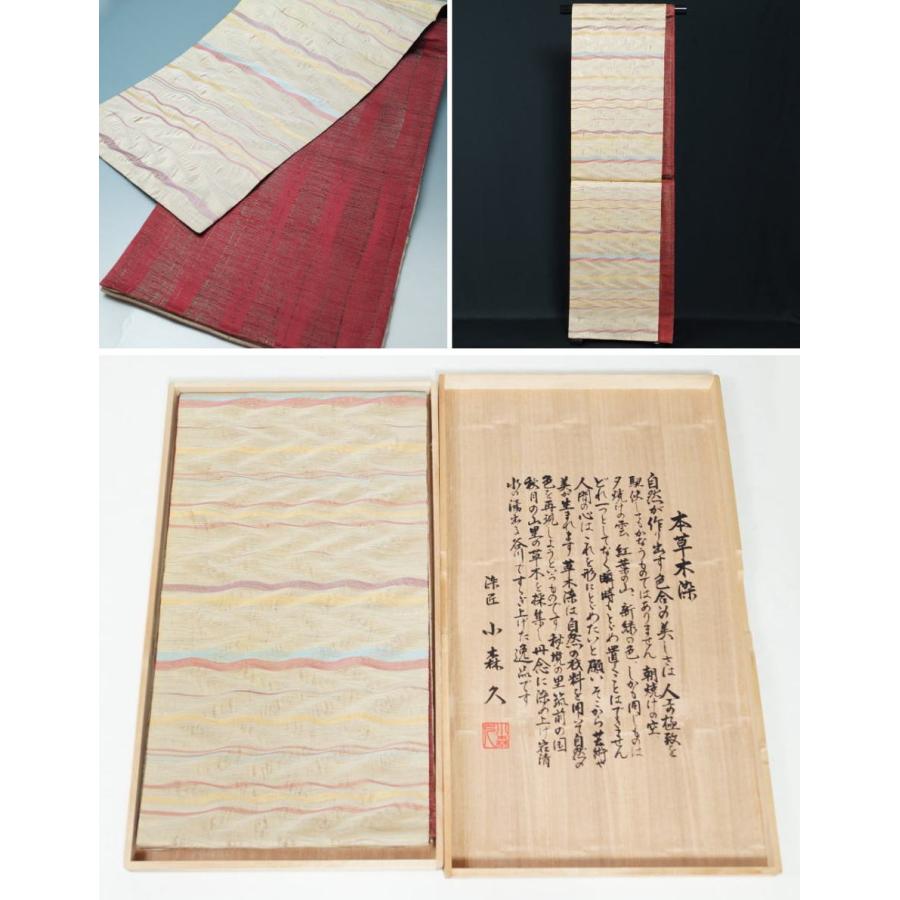 本草木染
自然が作り出す色合の美しさは 人工の極致を
駆使してもかなうものではありません 朝焼けの空
夕焼けの雲 紅葉の山 新緑の色 しかも同じものは
どれ一つとしてなく瞬時もとどめ置くことはできません
人間の心はこれを形にとどめたいと願い そこから芸術や
美が生まれます 草木染は自然の材料を用いて自然の
色を再現しようというものです 秘境の里 筑前の国
秋月の山里の草木を採集し 丹念に染め上げ 岩清
水の湧出る谷川ですすぎ上げた逸品です
染匠 小森久